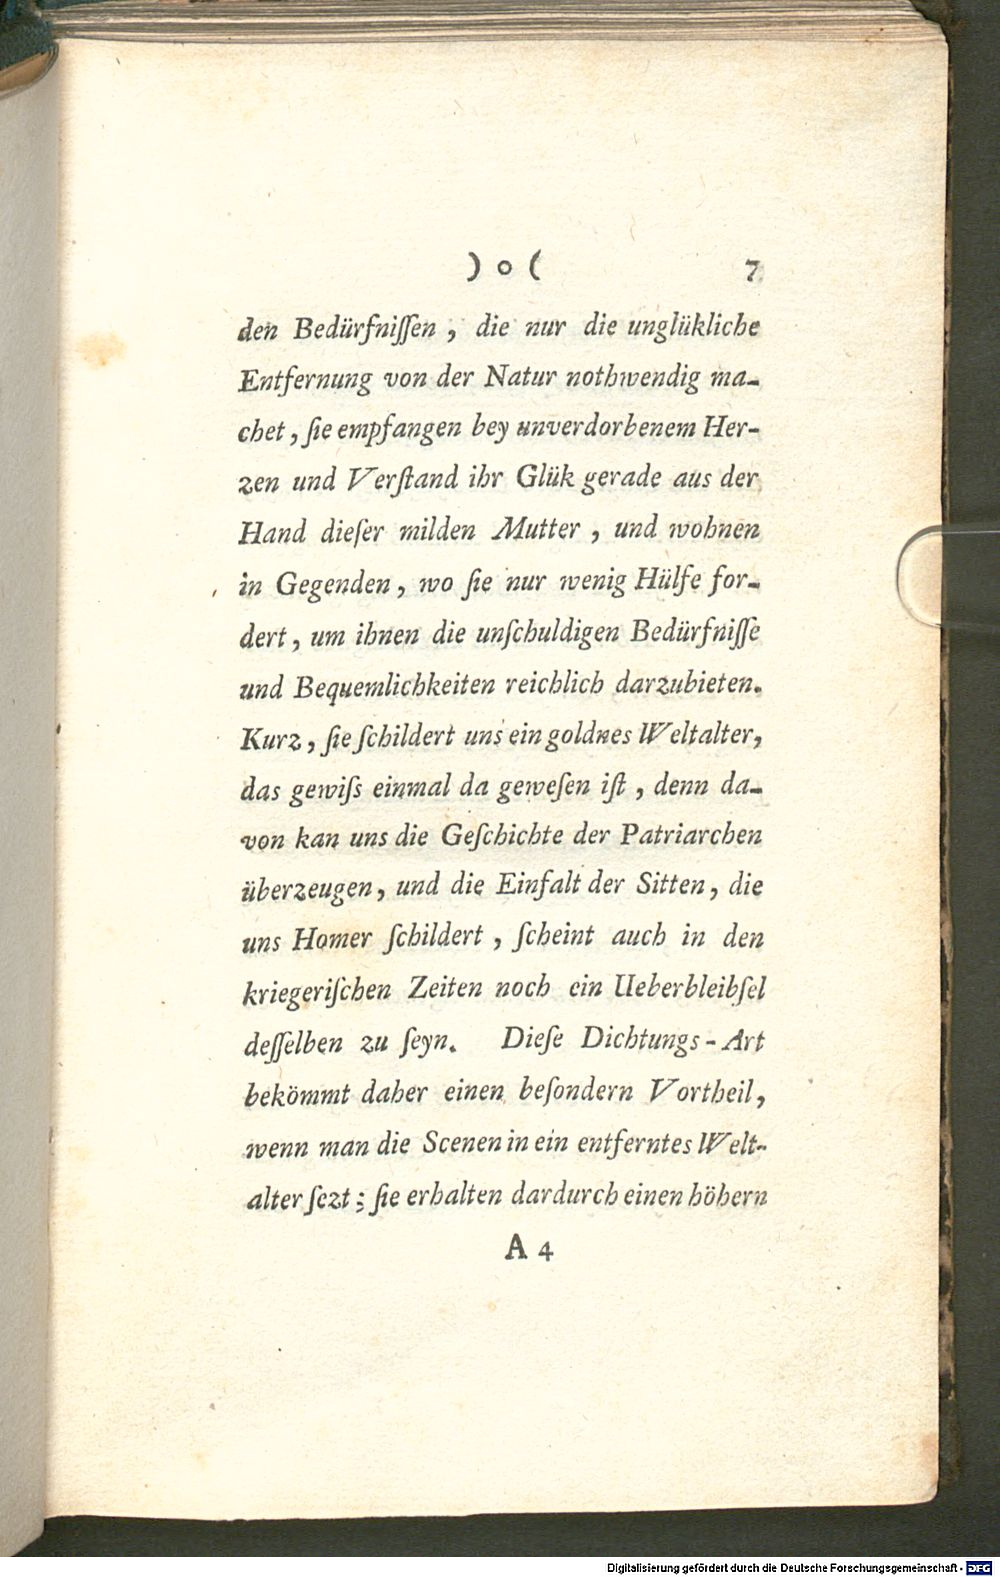 ) o ( 7
den Bedürfniſſen , die nur die unglükliche
Entfernung von der Natur nothwendig ma-
chet , ſie empfangen bey unverdorbenem Her-
zen und Verſtand ihr Glük gerade aus der
Hand dieſer milden Mutter , und wohnen
in Gegenden , wo ſie nur wenig Hülfe for-
dert , um ihnen die unſchuldigen Bedürfniſſe
und Bequemlichkeiten reichlich darzubieten.
Kurz , ſie ſchildert uns ein goldnes Weltalter,
das gewiſs einmal da geweſen iſt , denn da-
von kan uns die Geſchichte der Patriarchen
überzeugen, und die Einfalt der Sitten, die
uns Homer ſchildert , ſcheint auch in den
kriegeriſchen Zeiten noch ein Ueberbleibſel
deſſelben zu ſeyn. Dieſe Dichtungs-Art
bekömmt daher einen beſondern Vortheil,
wenn man die Scenen in ein entferntes Welt-
alter ſezt ; ſie erhalten dardurch einen höhern
A 4
Digitalisierung gefördert durch die Deutsche Forschungsgemeinschaft - DFG